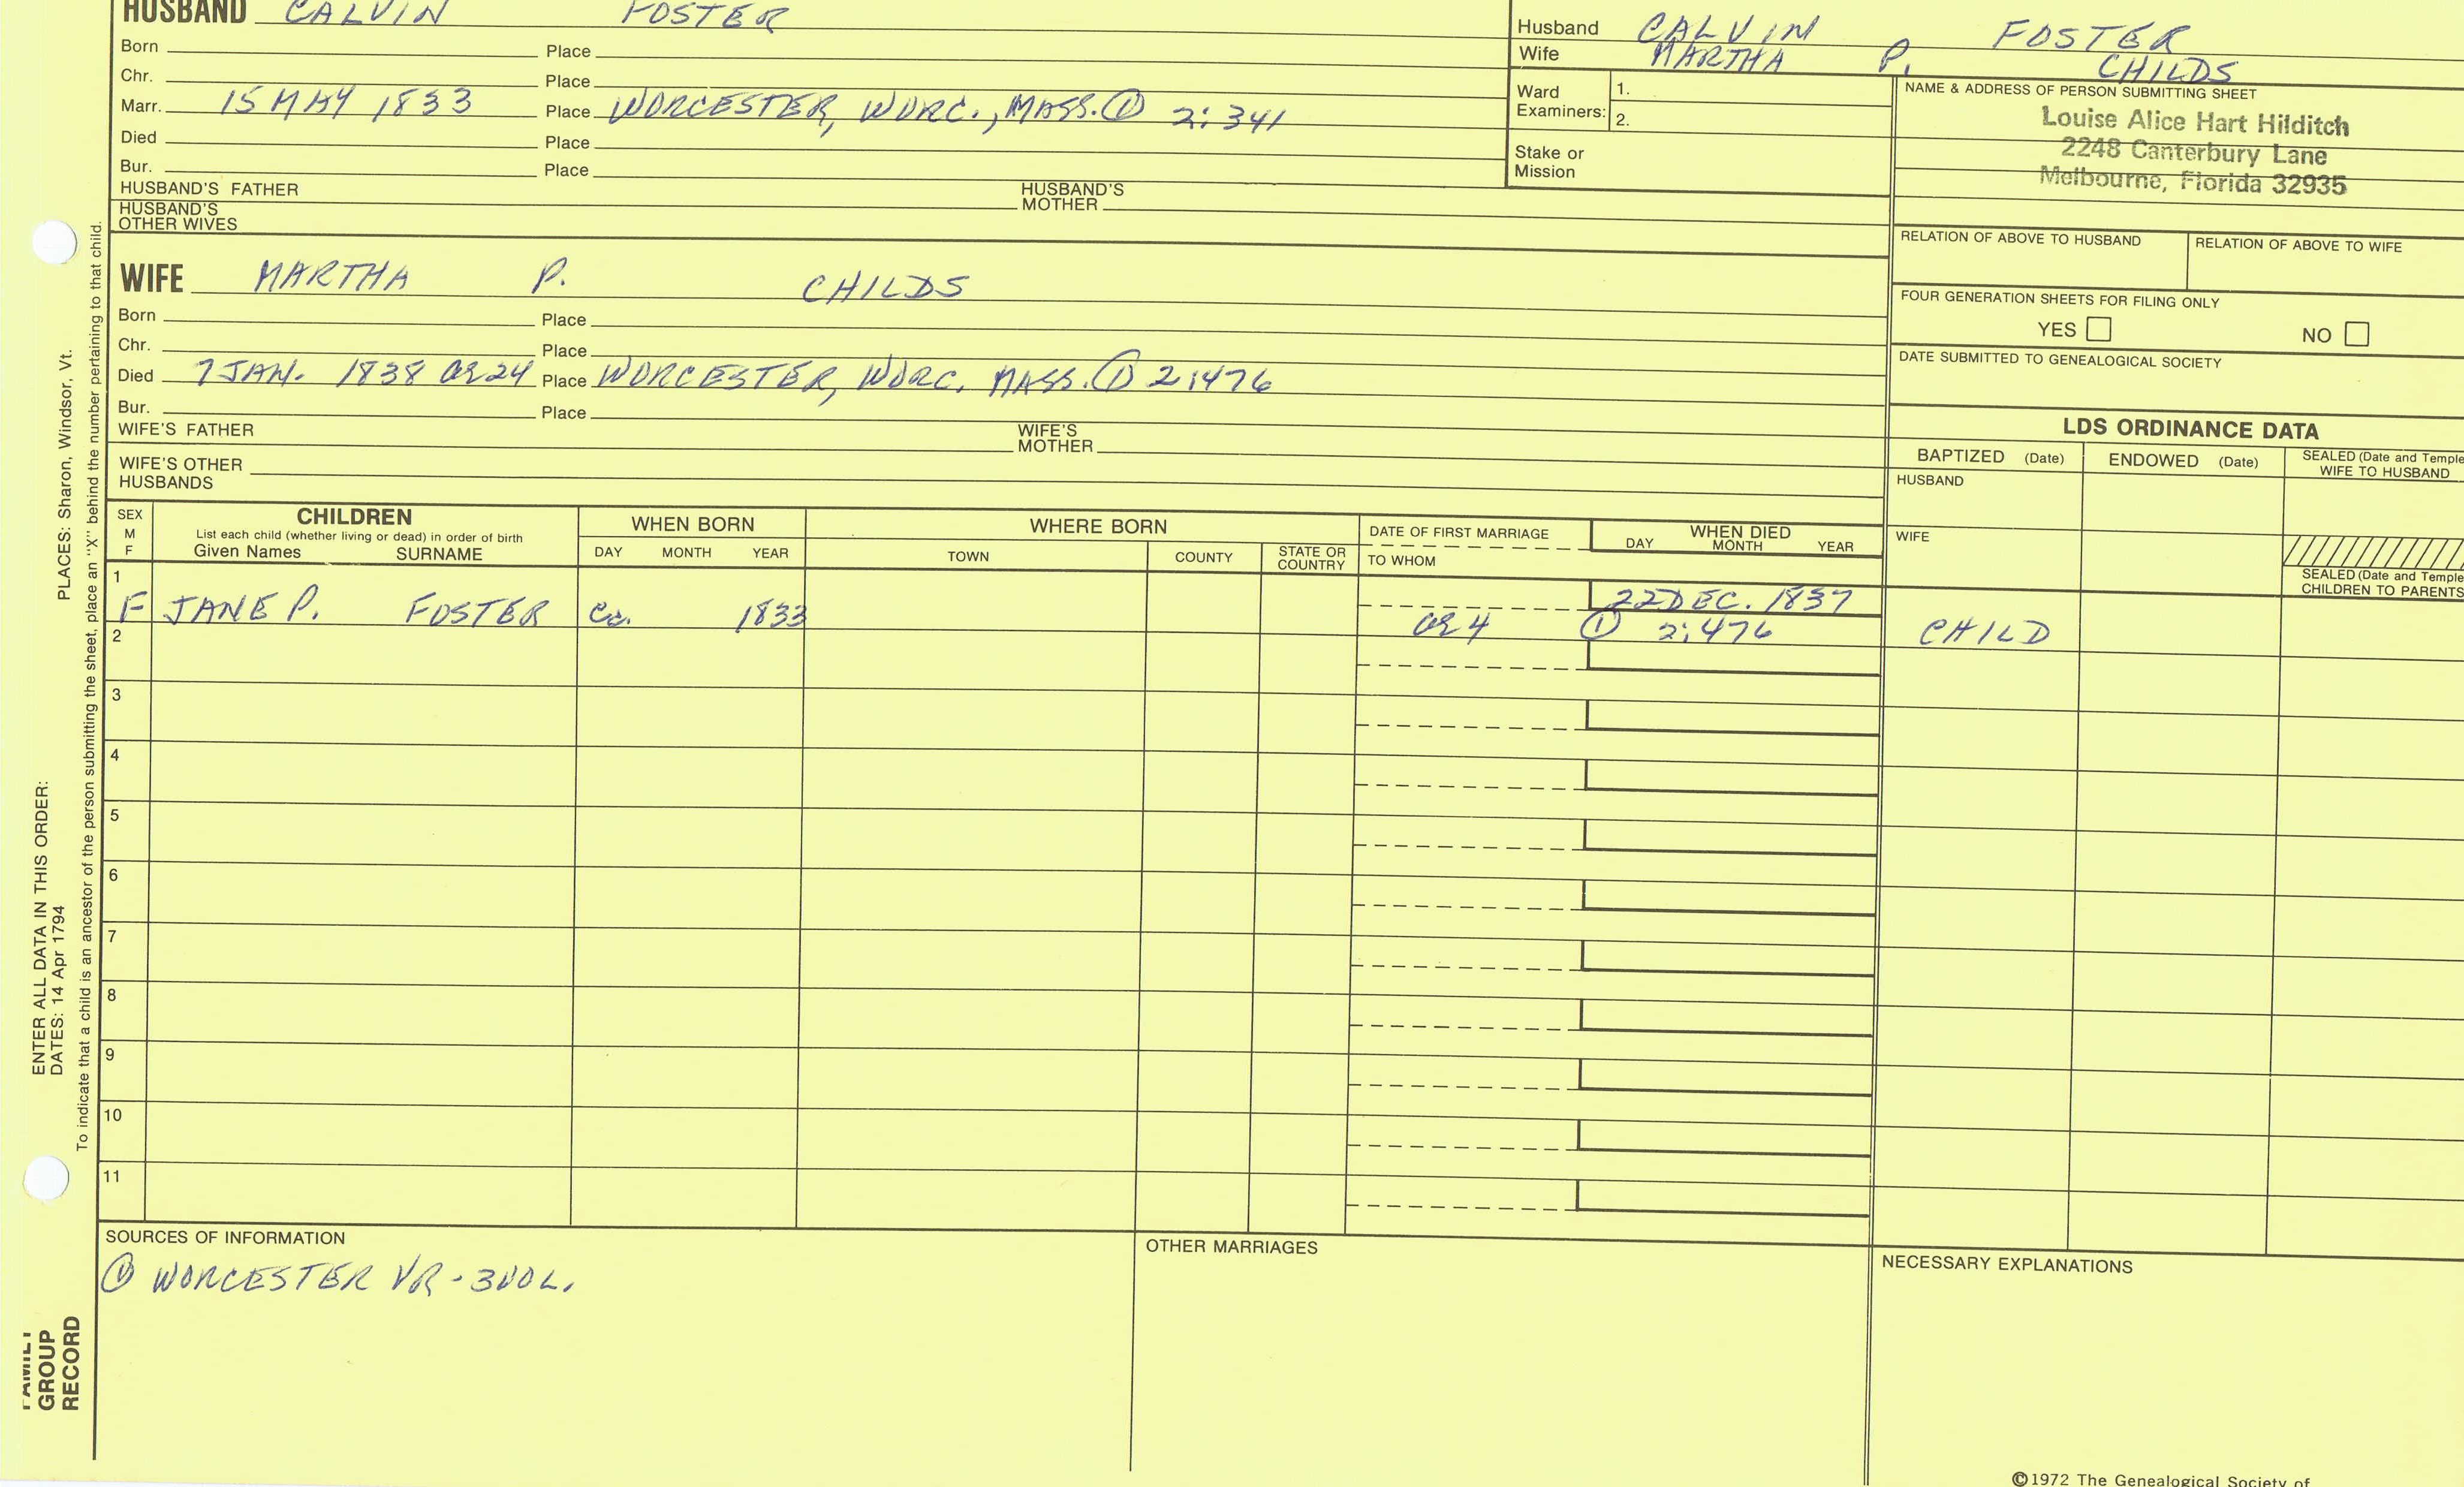 HUSBAND CALVIN FOSTER
Born Place
Chr. Place
Marr. 15 MAY 1833 Place WORCESTER, WORC., MASS. ① 2:341
Died Place
Bur. Place
HUSBAND'S FATHER HUSBAND'S MOTHER
HUSBAND'S OTHER WIVES
WIFE MARTHA P. CHILDS
Born Place
Chr. Place
Died 7 JAN. 1838 Æ 24 Place WORCESTER, WORC. MASS. ① 2:476
Bur. Place
WIFE'S FATHER WIFE'S MOTHER
WIFE'S OTHER HUSBANDS
Husband CALVIN FOSTER
Wife MARTHA P. CHILDS
Ward Examiners: 1.
2.
Stake or Mission
NAME & ADDRESS OF PERSON SUBMITTING SHEET
Louise Alice Hart Hilditch
2248 Canterbury Lane
Melbourne, Florida 32935
RELATION OF ABOVE TO HUSBAND RELATION OF ABOVE TO WIFE
FOUR GENERATION SHEETS FOR FILING ONLY
YES NO
DATE SUBMITTED TO GENEALOGICAL SOCIETY
LDS ORDINANCE DATA
BAPTIZED (Date) ENDOWED (Date) SEALED (Date and Temple
WIFE TO HUSBAND
HUSBAND
WIFE
SEALED (Date and Temple
CHILDREN TO PARENTS
SEX
M
F
CHILDREN
List each child (whether living or dead) in order of birth
Given Names SURNAME
WHEN BORN
DAY MONTH YEAR
WHERE BORN
TOWN COUNTY STATE OR COUNTRY
DATE OF FIRST MARRIAGE
TO WHOM
WHEN DIED
DAY MONTH YEAR
1
F JANE P. FOSTER Ca. 1833 22 DEC. 1837
Æ 4 ① 2:476 CHILD
2
3
4
5
6
7
8
9
10
11
SOURCES OF INFORMATION
① WORCESTER VR - 3 VOL.
OTHER MARRIAGES
NECESSARY EXPLANATIONS
©1972 The Genealogical Society of
PLACES: Sharon, Windsor, Vt.
To indicate that a child is an ancestor of the person submitting the sheet, place an "X" behind the number pertaining to that child.
ENTER ALL DATA IN THIS ORDER:
DATES: 14 Apr 1794
FAMILY
GROUP
RECORD